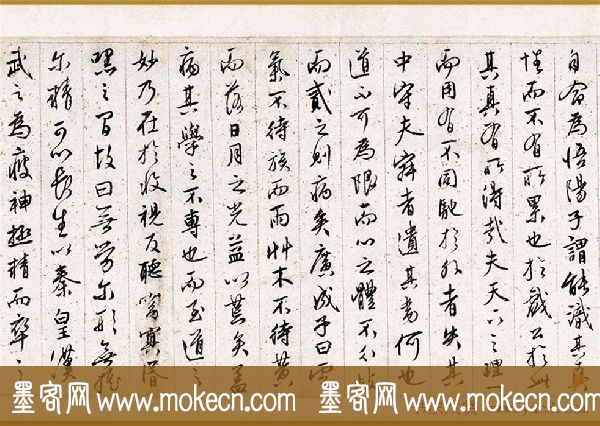 自命為悟陽子謂能識其真
性而不有所累也於戲公於此
其真有所得哉夫天下之理一
而用有不同馳於外者失其
中守夫寂者遺其為何也
道不可為隅而心之體不
而貳之則病矣廣成子曰雲
氣不待族而雨艸木不待黃
而落日月之光益以荒矣蓋
病其學之不專也而至道之
妙乃在於收視反聽窅冥昏
嘿之間故曰無勞尔形無搖
尔精可以長生以秦皇漢
武之為疲神極精而卒之
墨客网 www.mokecn.com 墨客网 www.mokecn.com